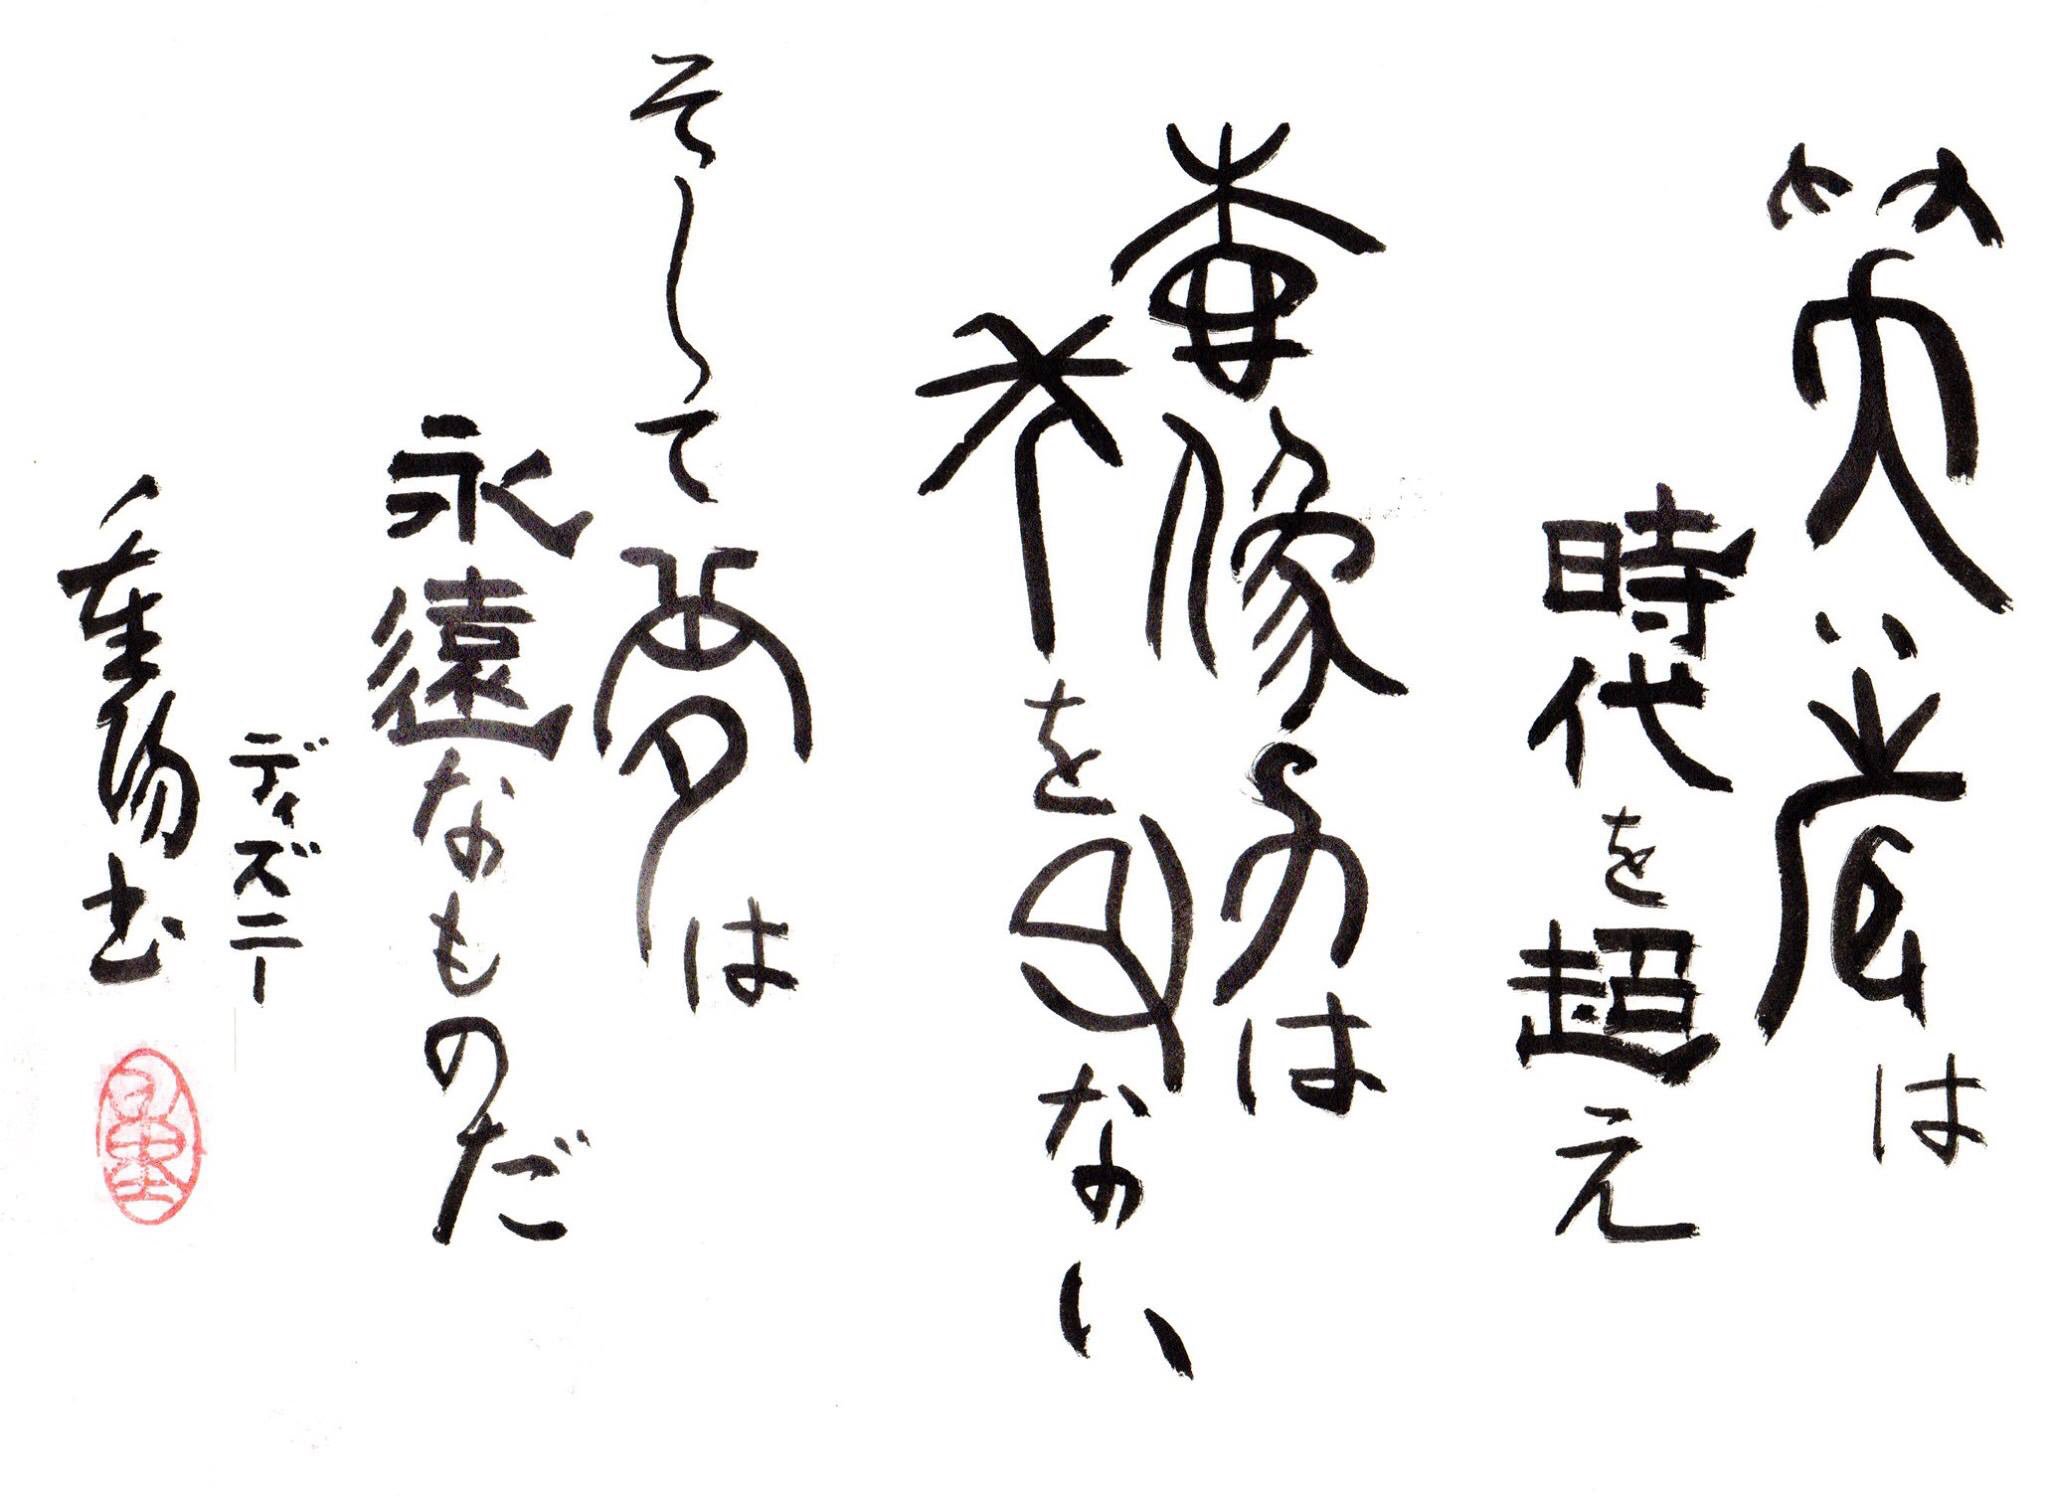 笑い声は
時代を超え
想像力は
年を取ない
そして夢は
永遠なものだ
ディズニー
重陽書